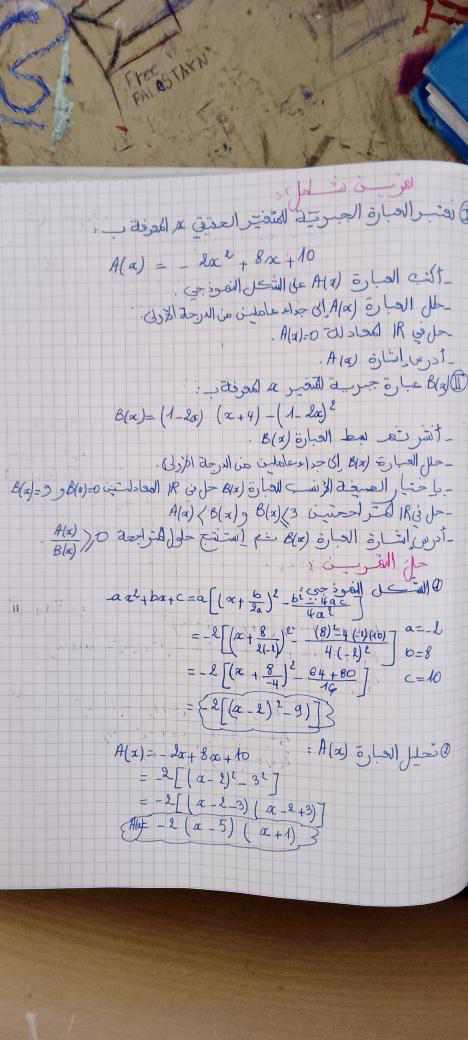 Free
PALASTAYN
تمرين شامل:
I نعتبر العبارة الجبرية للمتغير الحقيقي x المعرفة ب:
A(x) = - 2x² + 8x + 10
- أكتب العبارة A(x) على الشكل النموذجي.
- حلل العبارة A(x) إلى جداء عاملين من الدرجة الأولى
- حل في IR المعادلة A(x)=0.
- أدرس إشارة A(x).
II) B(x) عبارة جبرية للمتغير x المعرفة ب:
B(x) = (1-2x) (x+4) - (1-2x)²
- أنشر ثم بسط العبارة B(x).
- حلل العبارة B(x) إلى جداء عاملين من الدرجة الأولى.
- بإختيار الصيغة الأنسب للعبارة B(x) حل في IR المعادلتين B(x)=0 و B(x)=3
- حل في IR المتراجحتين B(x) ≤ 3 و A(x) < B(x)
- أدرس إشارة العبارة B(x) ثم إستنتج حلول المتراجحة A(x)/B(x) ≥ 0
حل التمرين:
① الشكل النموذجي:
ax²+bx+c = a[(x + b/2a)² - b²-4ac/4a²]
= -2[(x + 8/2(-2))² - (8)²-4(-2)(10)/4(-2)²] a=-2
b=8
= -2[(x + 8/-4)² - 64+80/16] c=10
= -2[(x-2)² - 9)]
② تحليل العبارة A(x):
A(x) = -2x+8x+10
= -2[(x-2)² - 3²]
= -2[(x-2-3)(x-2+3)]
A(x)= -2 (x-5) (x+1)